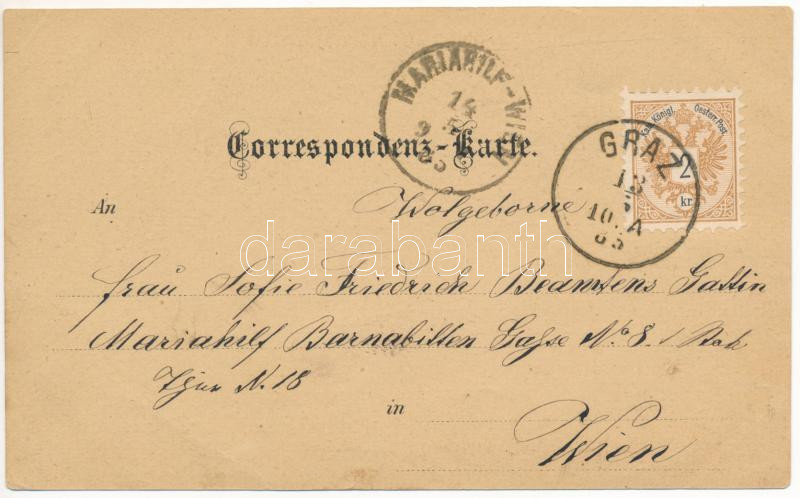 MARIAHILF-WIEN
14
5
9
85
Kais. Königl. Oesterr. Post.
2
kr.
GRAZ
13
5
10 A
85
Correspondenz-Karte.
An Wolgeborne
darabanth
Frau Sofie Friedrich Beamtens Gattin
Mariahilf Barnabitten Gasse No. 8. 1 Stok
Thür N. 18
in
Wien